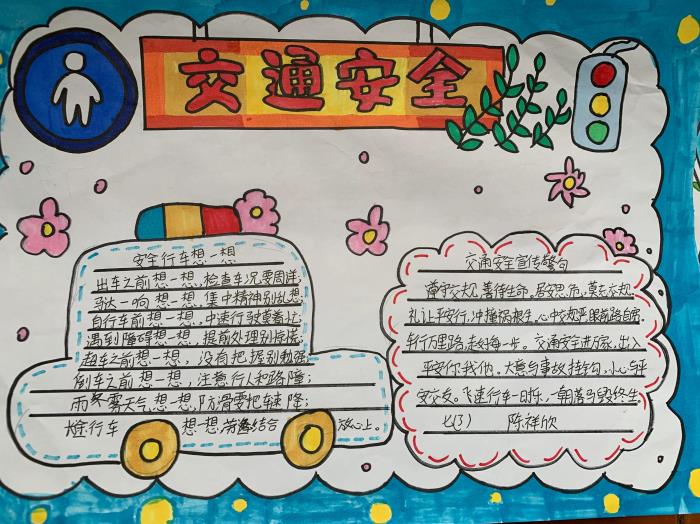 交通安全
安全行车想一想
出车之前想一想,检查车况要周详;
马达一响想一想,集中精神别乱想;
自行车前想一想,中速行驶莫着忙
遇到障碍想一想,提前处理别惊慌;
超车之前想一想,没有把握别勉强
倒车之前想一想,注意行人和路障;
雨雾天气想一想,防滑要把车速降;
长途行车 想一想,劳逸结合 放心上。
交通安全宣传警句
遵守交规,善待生命,居安思危,莫忘交规
礼让平安行,冲撞祸根生,心中交规严眼前路自宽
车行万里路,走好每一步。交通安全进万家,出入
平安你我他。大意与事故挂钩,小心与平
安交友。飞速行车一时快,一朝落马毁终生
七(3) 陈祥欣